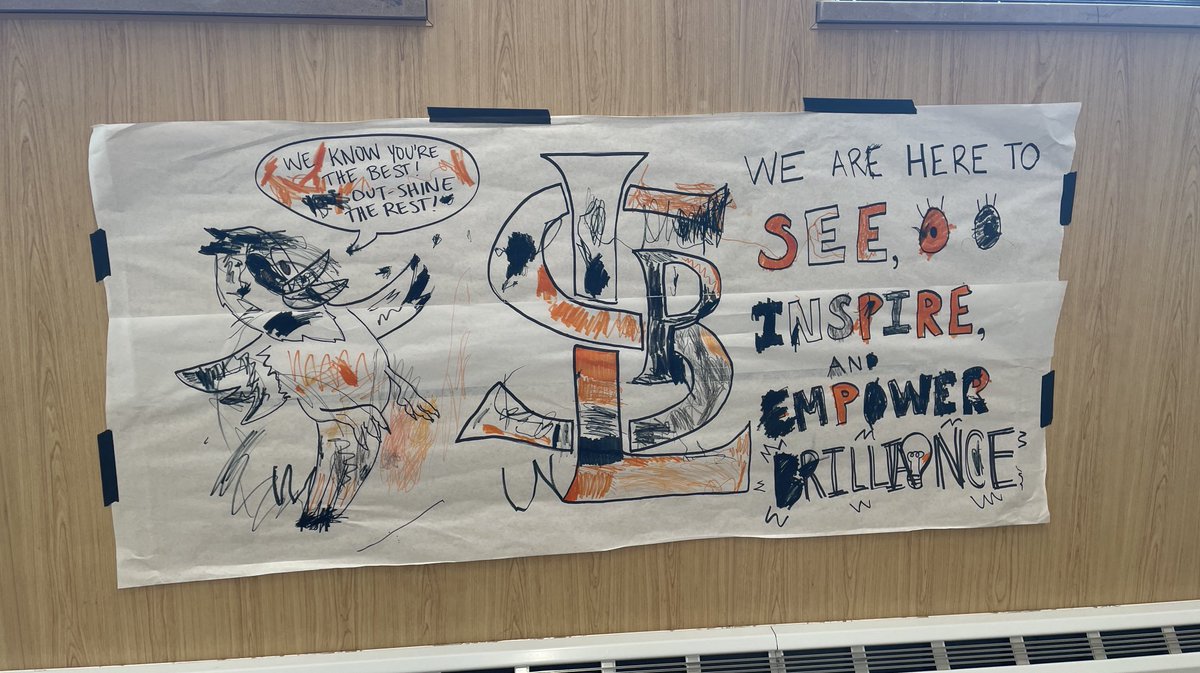 WE KNOW YOU'RE
THE BEST!
OUT-SHINE
THE REST!
WE ARE HERE TO
SEE,
INSPIRE,
AND
EMPOWER
BRILLIANCE